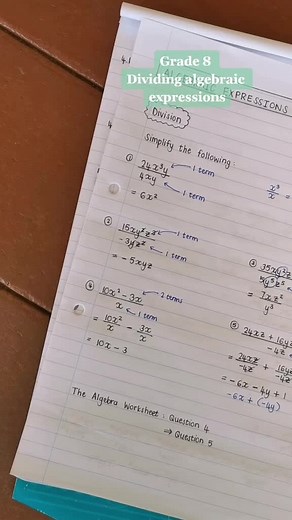 Grade 8
Dividing algebraic
expressions
4.1
EXPRESSIONS
Division
4
Simplify the following:
① 24x³y / 4xy
1 term
1 term
= 6x²
x³ / x =
②
1 term
1 term
= -5xyz
35xy²z
= 7xz² / y³
④ 10x² - 3x / x
2 terms
1 term
= 10x² / x - 3x / x
= 10x - 3
⑤ 24xz + 16yz
-4z
= 24xz / -4z + 16yz / -4z
= -6x - 4y + 1
-6x + (-4y)
The Algebra Worksheet : Question 4
→ Question 5